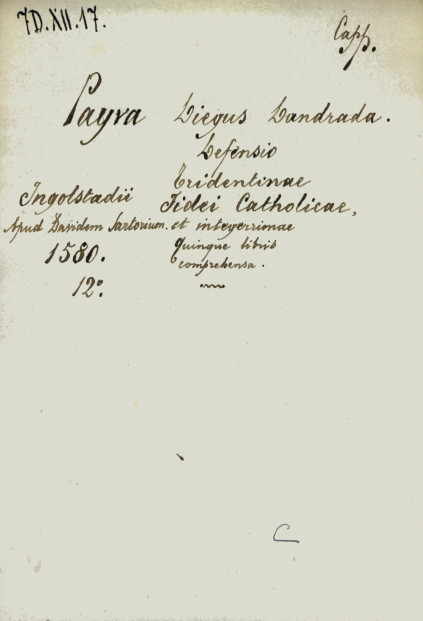 7D.XII.17.
Capp.
Payva Diegus Dandrada.
Defensio
Tridentinae
Ingolstadii Fidei Catholicae,
Apud Davidem Sartorium. et integerrimae
1580. quinque libris
comprehensa.
12º
C